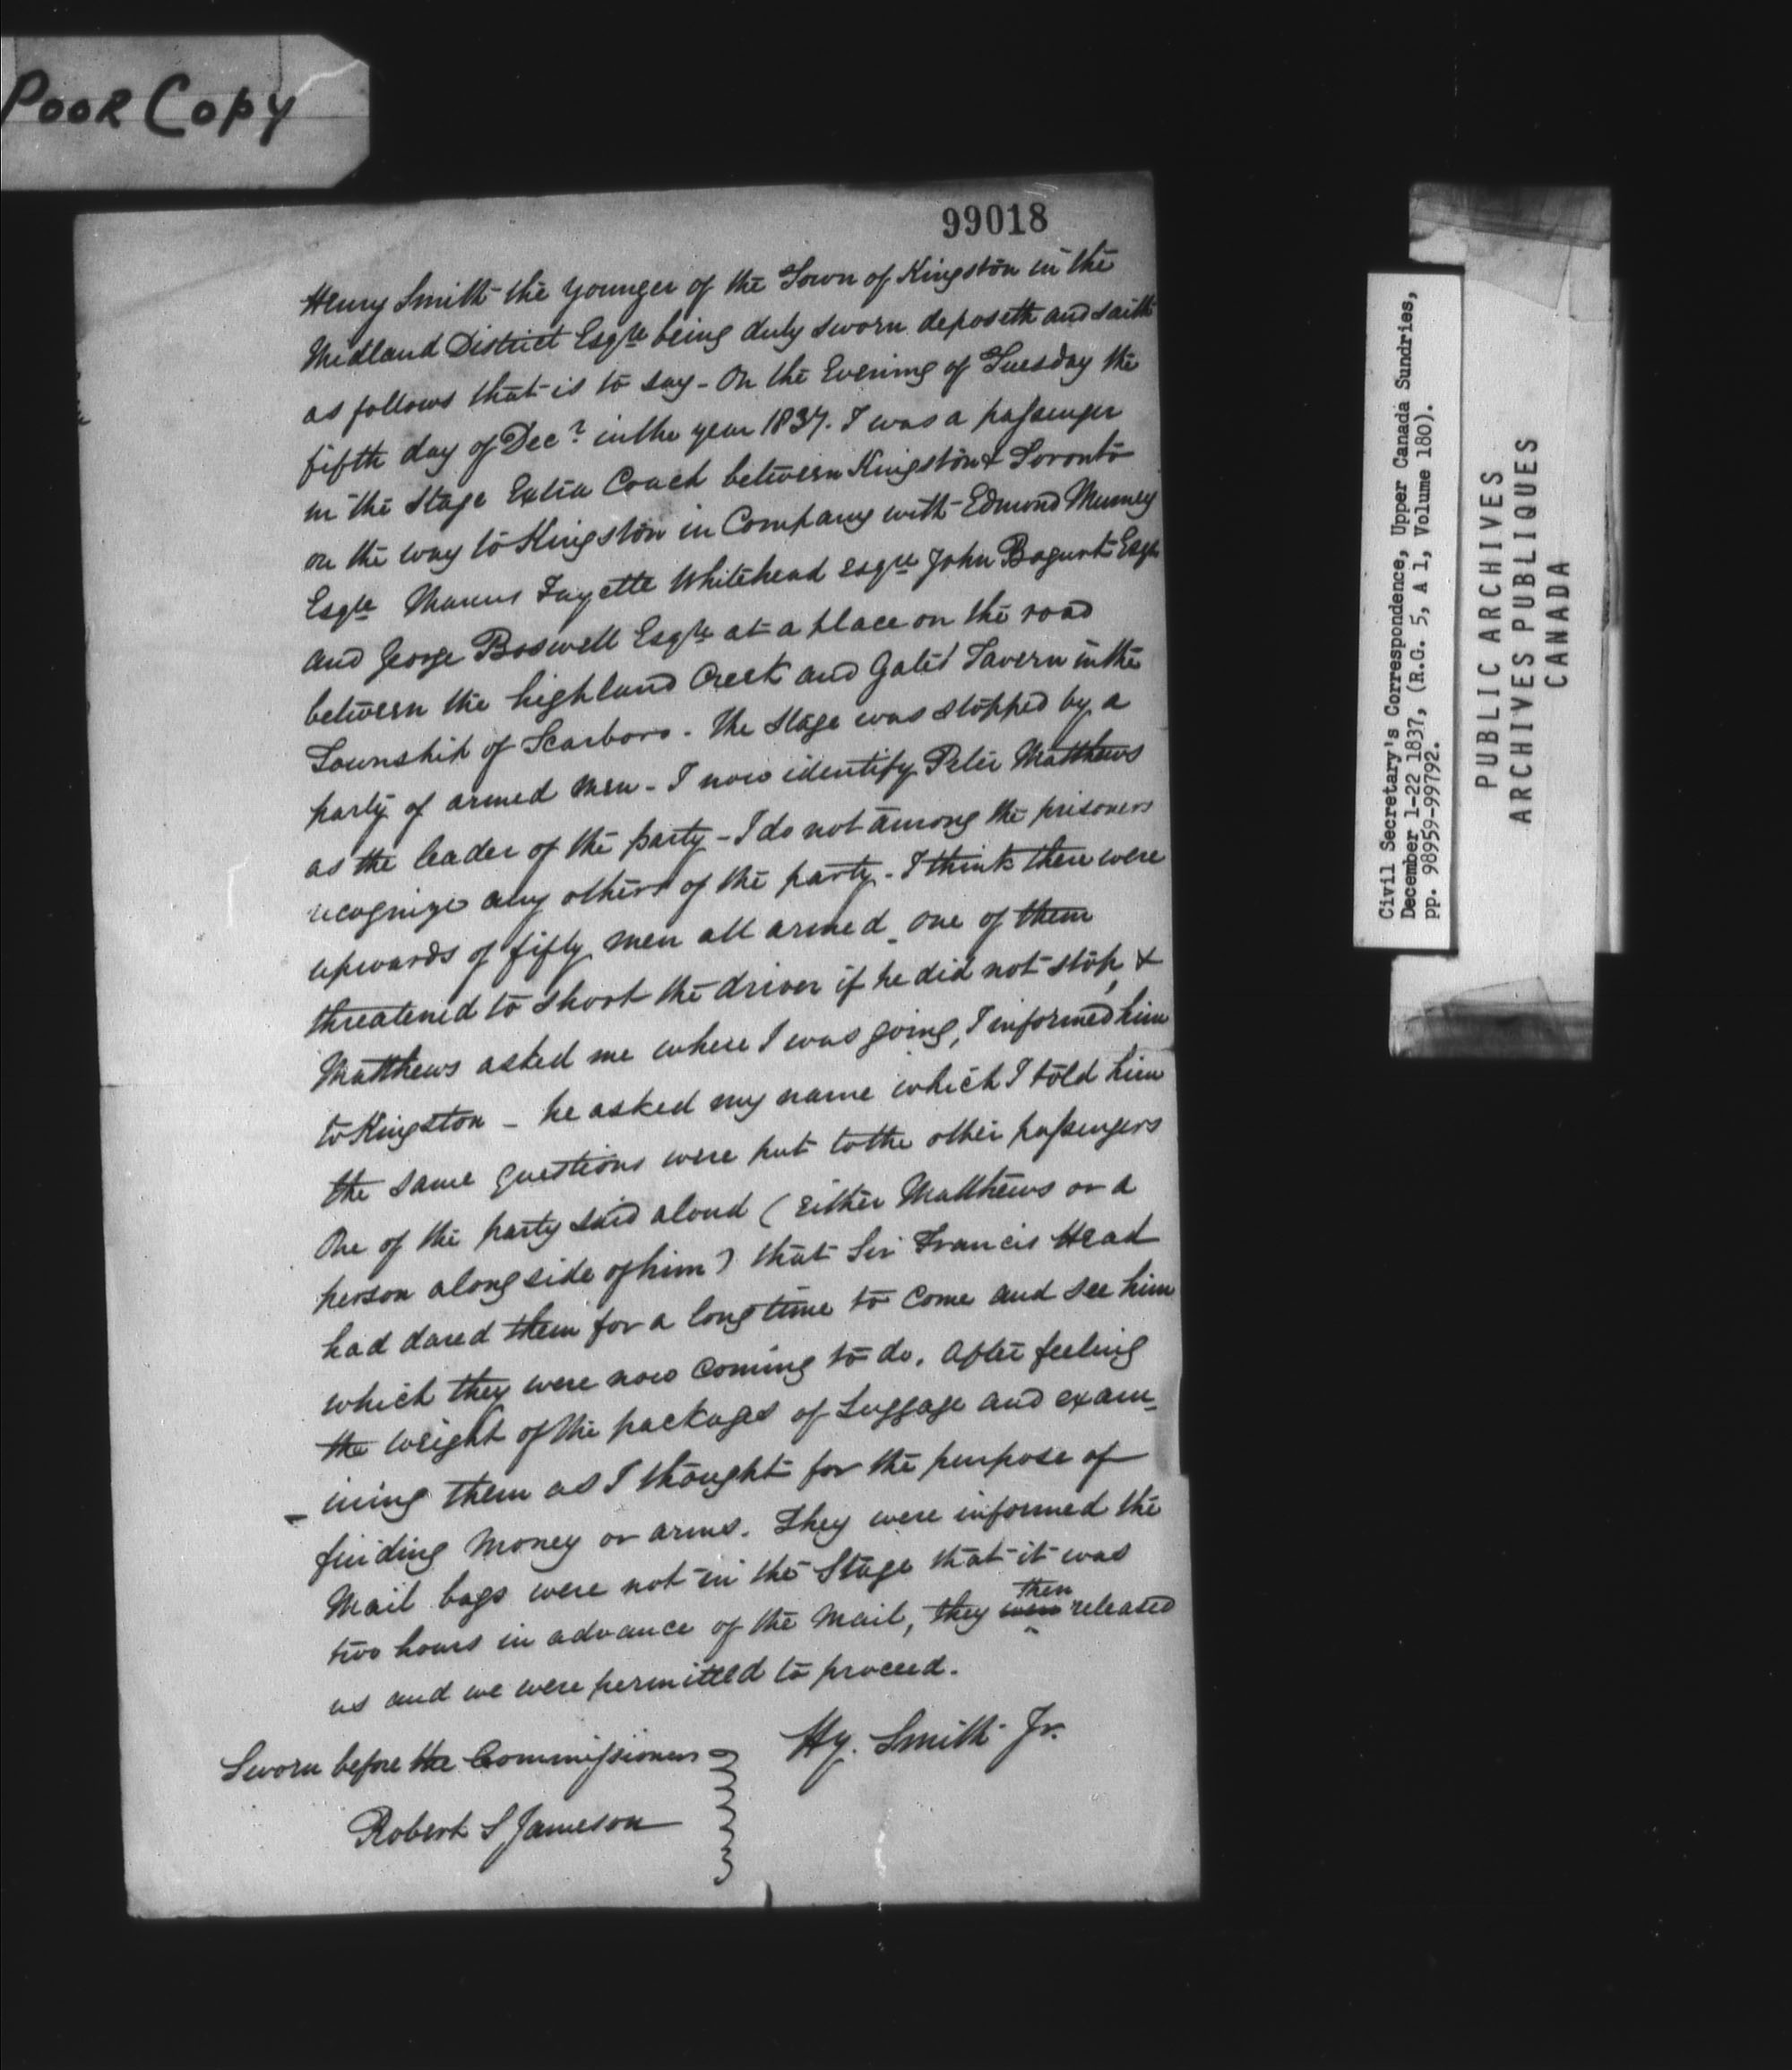 Poor Copy
99018
Henry Smith the younger of the Town of Kingston in the
Midland District Esqre being duly sworn deposeth and saith
as follows that is to say - On the Evening of Tuesday the
fifth day of Decr in the year 1837. I was a passenger
in the Stage Extra Coach between Kingston & Toronto
on the way to Kingston in Company with Edmond Murney
Esqre Marcus Fayette Whitehead esqre John Bogurt Esqre
and George Boswell Esqre at a place on the road
between the highland Creek and Gates Tavern in the
Township of Scarboro. The Stage was stopped by a
party of armed men - I now identify Peter Matthews
as the leader of the party - I do not among the prisoners
recognize any others of the party - I think there were
upwards of fifty men all armed - one of them
threatened to shoot the driver if he did not stop, &
Matthews asked me where I was going, I informed him
to Kingston - he asked my name which I told him
the same questions were put to the other passengers
One of the party said aloud (either Matthews or a
person along side of him) that Sir Francis Head
had dared them for a long time to come and see him
which they were now coming to do. After feeling
the weight of the packages of Luggage and exam-
-ining them as I thought for the purpose of
finding money or arms. They were informed the
Mail bags were not in the Stage that it was
then
two hours in advance of the mail, they were released
us and we were permitted to proceed.
Hy. Smith Jr.
Sworn before the Commissioners
Robert S Jameson
Civil Secretary's Correspondence, Upper Canada Sundries,
December 1-22 1837, (R.G. 5, A 1, Volume 180).
pp. 98959-99792.
PUBLIC ARCHIVES
ARCHIVES PUBLIQUES
CANADA